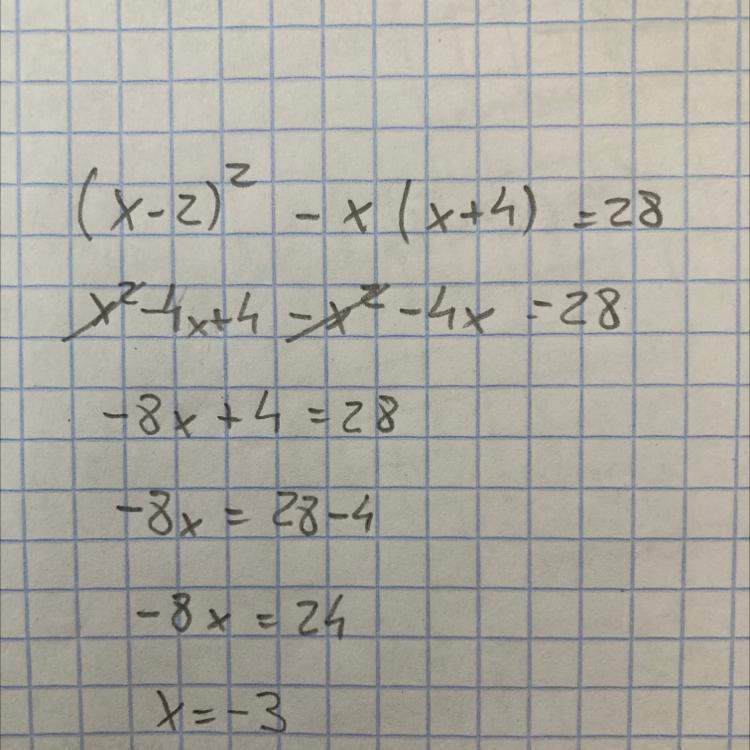 (x-2)² - x(x+4) = 28
x² - 4x + 4 - x² - 4x = 28
-8x + 4 = 28
-8x = 28 - 4
-8x = 24
x = -3